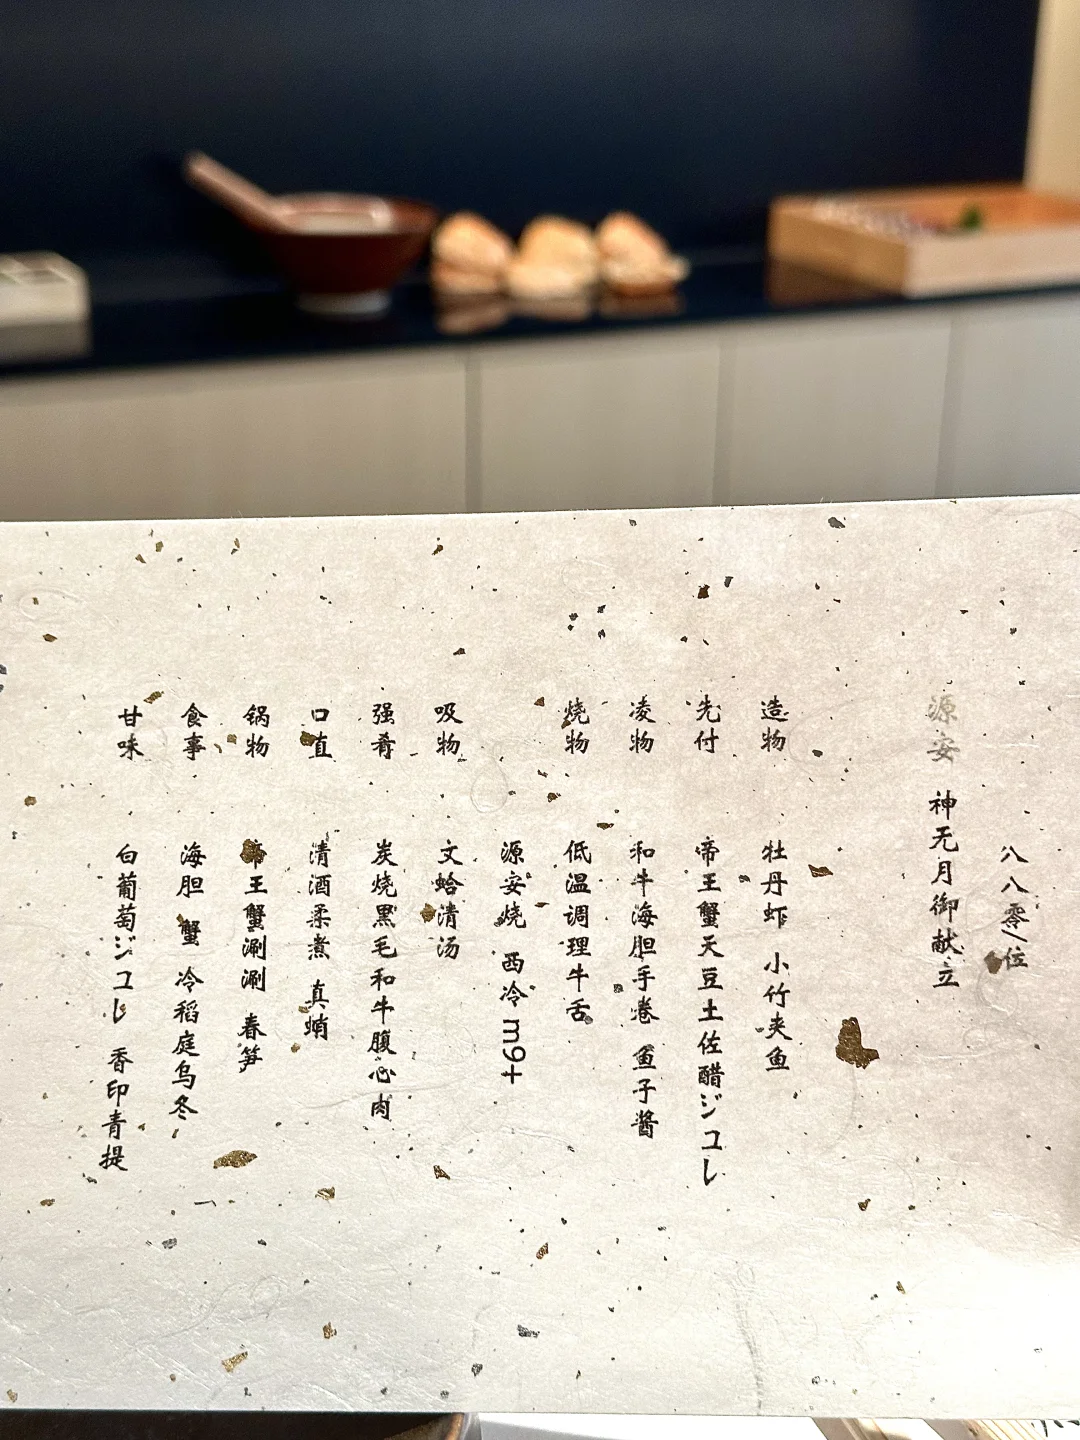 八八零/位
源安 神无月御献立
造物 牡丹虾 小竹夹鱼
先付 帝王蟹天豆土佐醋ジュレ
凌物 和牛海胆手卷 鱼子酱
烧物 低温调理牛舌
源安烧 西冷m9+
吸物 文蛤清汤
强肴 炭烧黑毛和牛腹心肉
口直 清酒柔煮 真蛸
锅物 帝王蟹涮涮 春笋
食事 海胆 蟹 冷稻庭乌冬
甘味 白葡萄ジュレ 香印青提